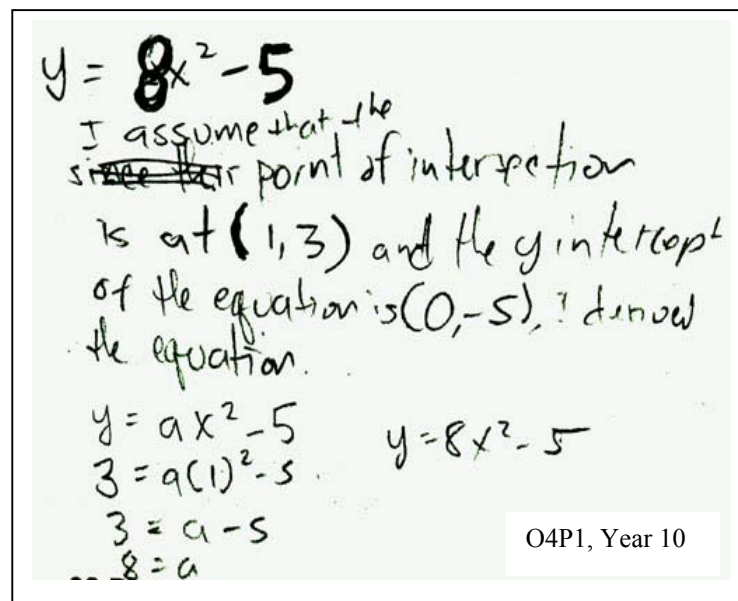 y = 8x² - 5
I assume that the
since their point of intersection
is at (1,3) and the y intercept
of the equation is (0,-5), I derived
the equation.
y = ax² - 5
y = 8x² - 5
3 = a(1)² - 5
3 = a - 5
8 = a
O4P1, Year 10